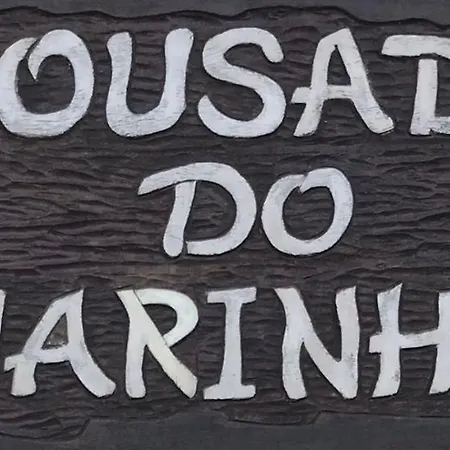 OUSAD
DO
MARINH